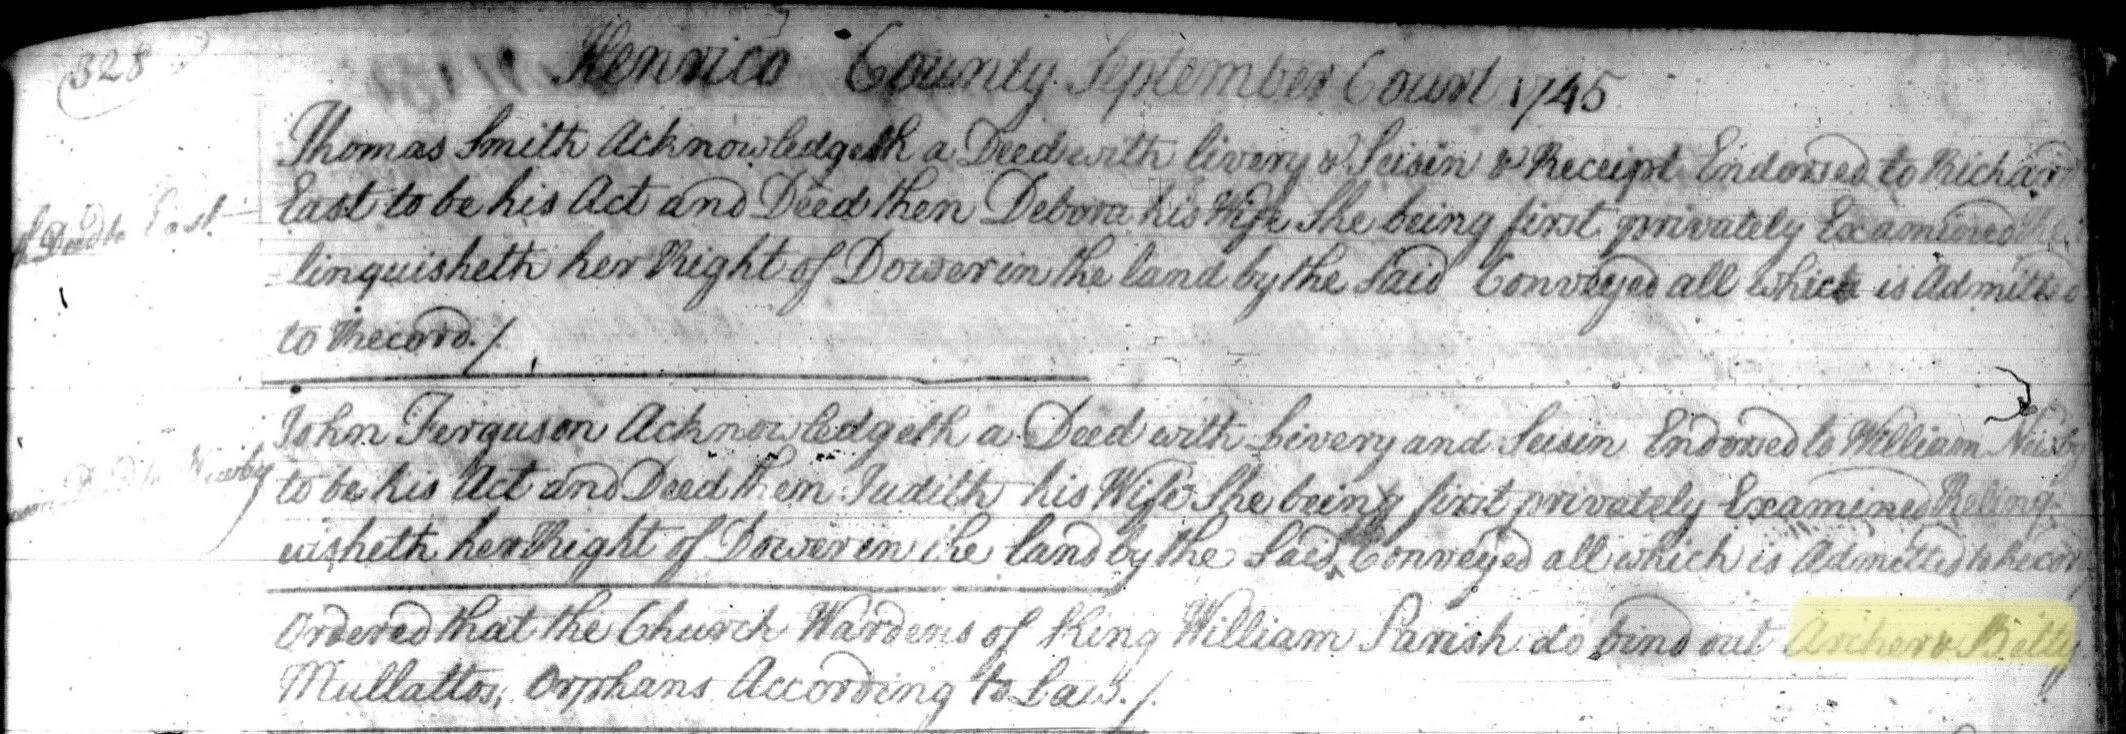 328
Henrico County September Court 1745
Thomas Smith Acknowledgeth a Deed with livery & Seisin & Receipt Endorsed to Richard
East to be his Act and Deed then Debora his Wife She being first privately Examined Re
linquisheth her Right of Dower in the land by the Said Conveyed all which is Admitted
to Record./
Deed to East
John Ferguson Acknowledgeth a Deed with Livery and Seisin Endorsed to William
to be his Act and Deed then Judith his Wife She being first privately Examined Relinq
uisheth her Right of Dower in the land by the Said Conveyed all which is Admitted to Recor
Ordered that the Church Wardens of King William Parish do bind out Archer & Betty
Mullattos, Orphans According to Law./